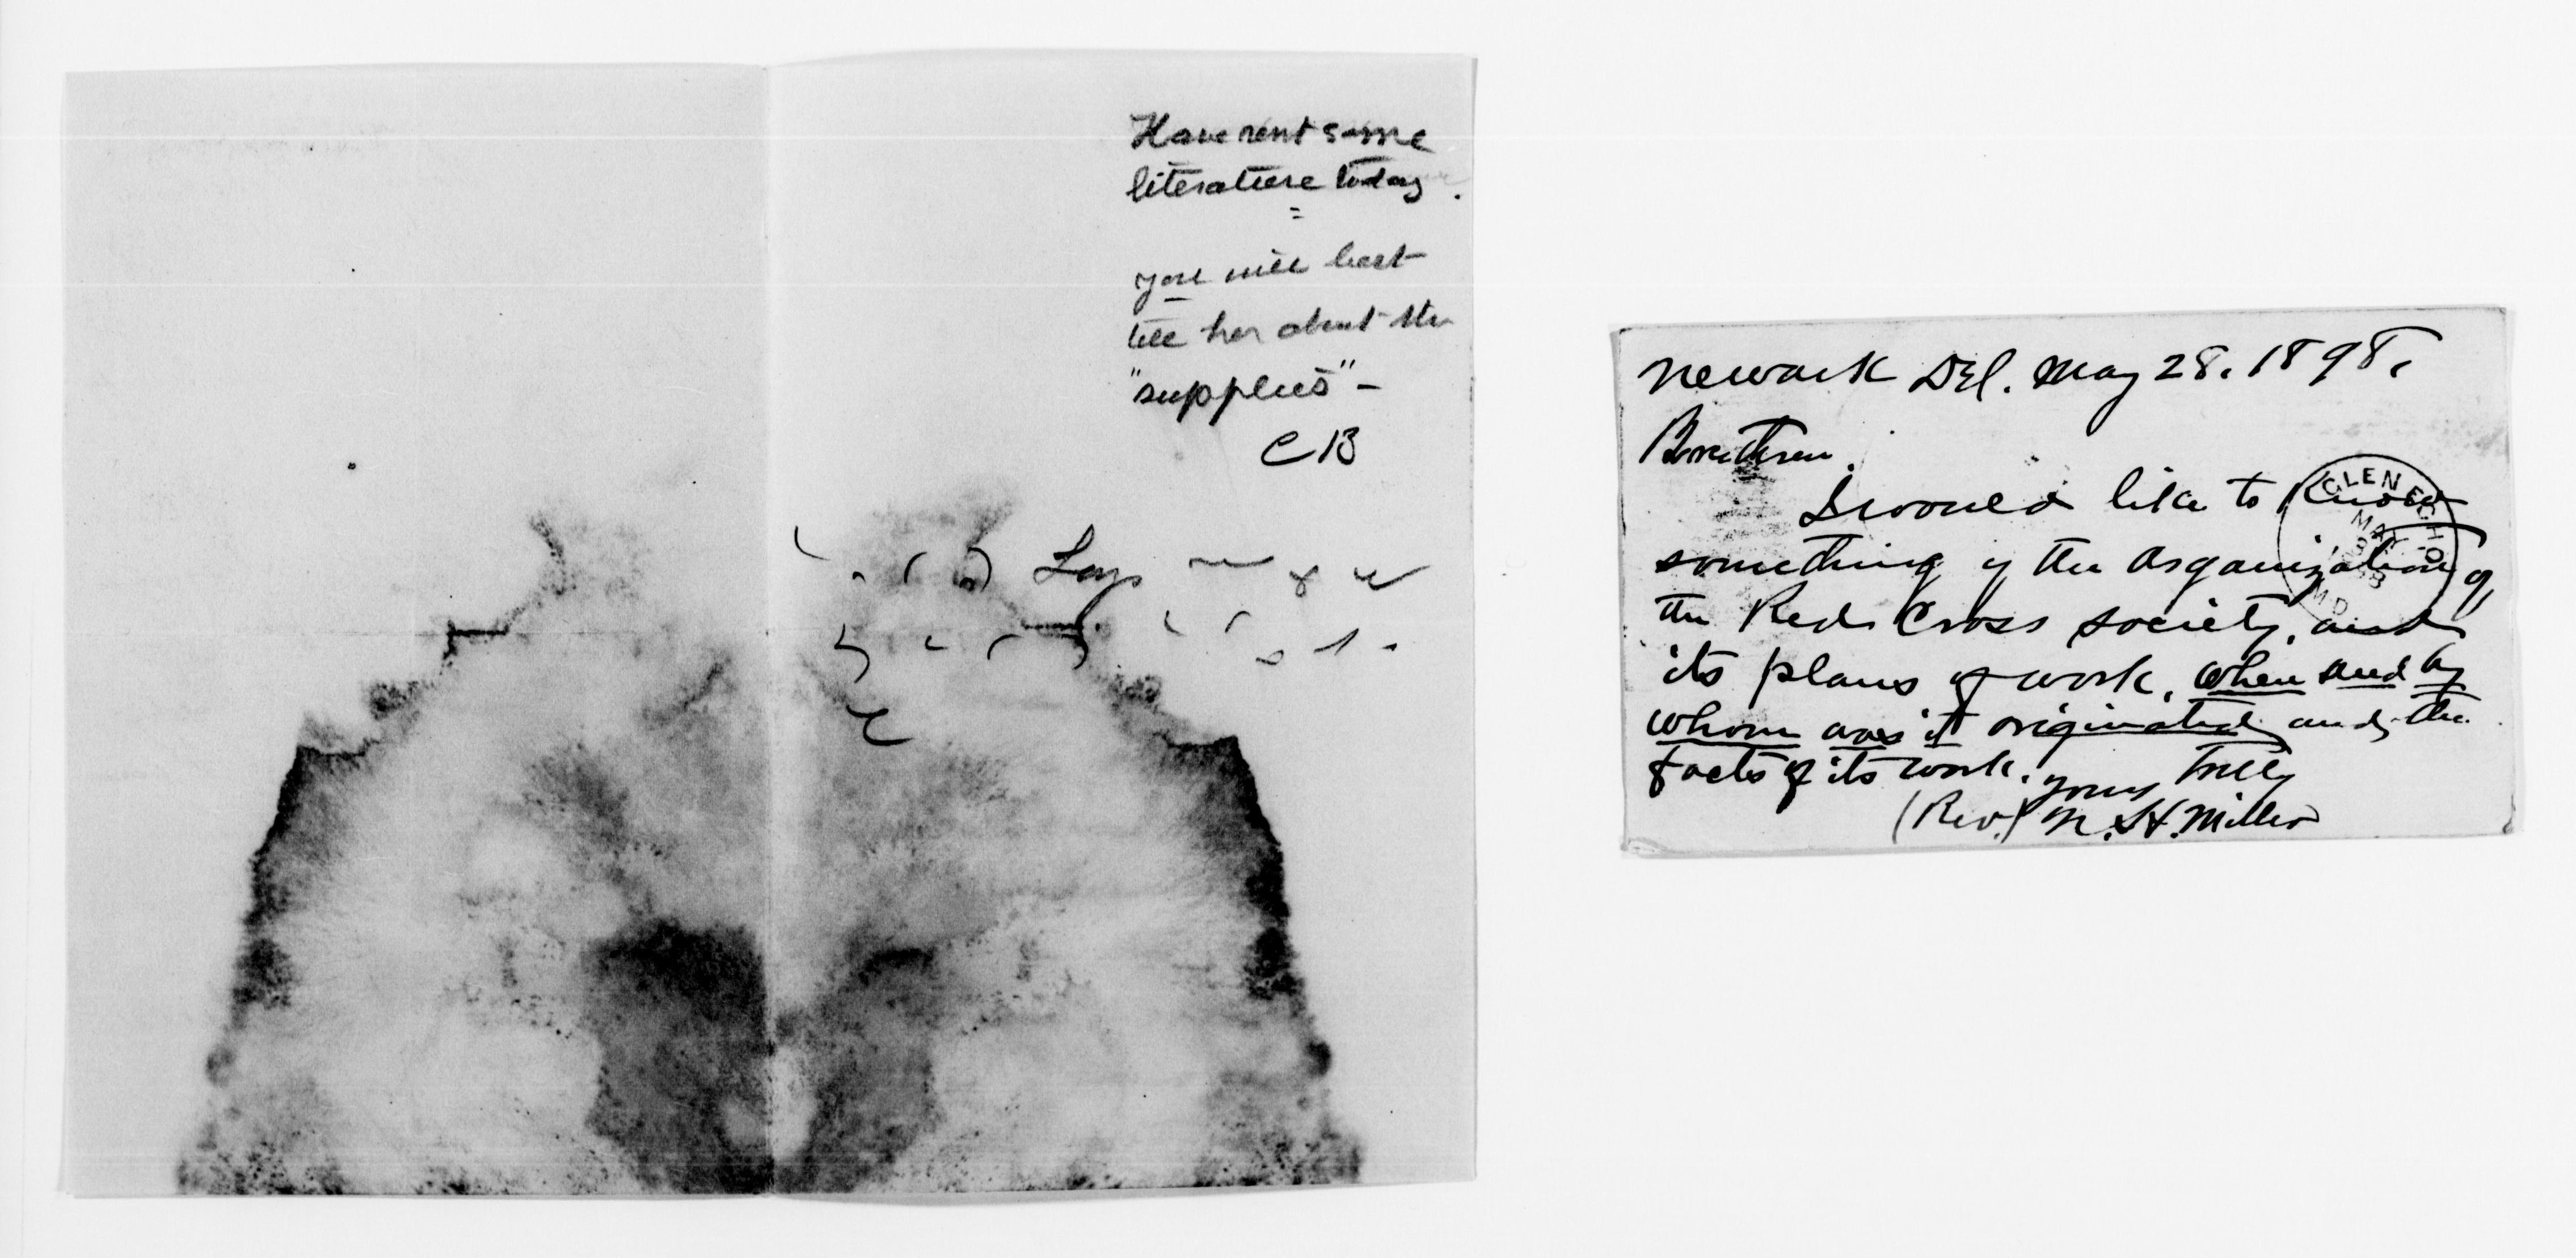 Have sent some
literature today.
you will best
tell her about the
"supplies" –
CB
Newark Del. May 28. 1898.
Brethren.
I would like to know
something of the organization of
the Red Cross society, and
its plans of work, when and by
whom was it originated and the
facts of its work. yours truly
(Rev.) N. H. Miller
GLEN ECHO
MAY
MD